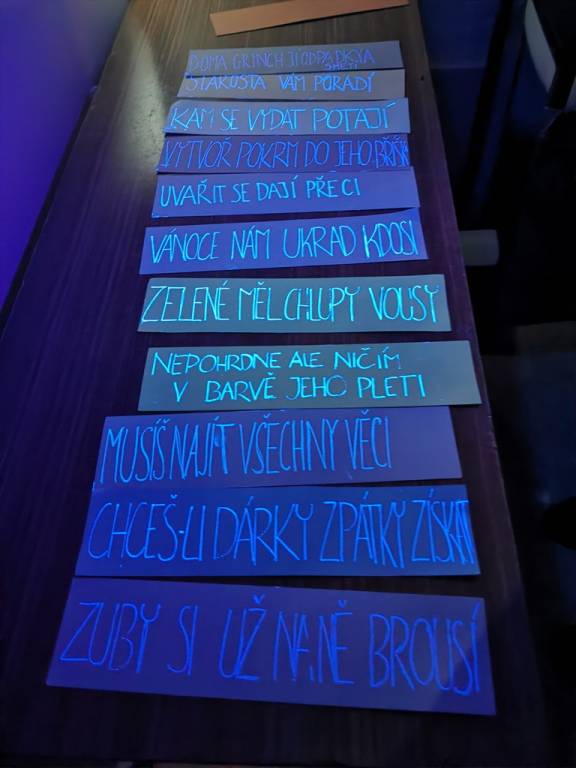 DOMA GRINCH JÍ ODPADKY A
SMETÍ
STAROSTA VÁM PORADÍ
KAM SE VYDAT POTAJÍ
VYTVOŘ POKRM DO JEHO BŘÍŠK
UVAŘIT SE DAJÍ PŘECI
VÁNOCE NÁM UKRAD KDOSI
ZELENÉ MĚL CHLUPY VOUSY
NEPOHRDNE ALE NIČÍM
V BARVĚ JEHO PLETI
MUSÍŠ NAJÍT VŠECHNY VĚCI
CHCEŠ-LI DÁRKY ZPÁTKY ZÍSKAT
ZUBY SI UŽ NA NĚ BROUSÍ